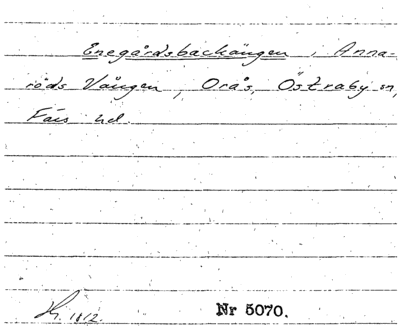 Enegårdsbackängen, Anna-
röds Vången, Orås, Östraby sn,
Färs hd.
1812.
Nr 5070.